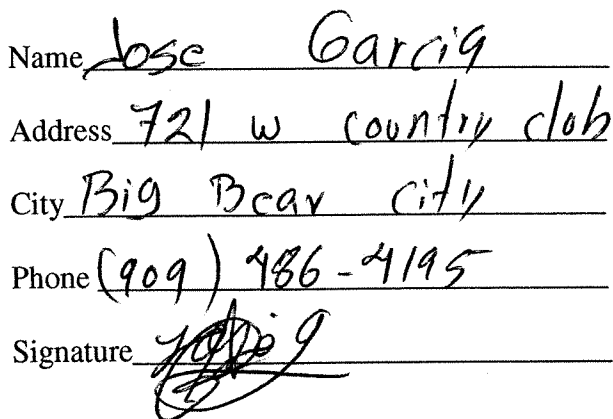 Name Jose Garcia
Address 721 w country club
City Big Bear city
Phone (909) 486-4195
Signature